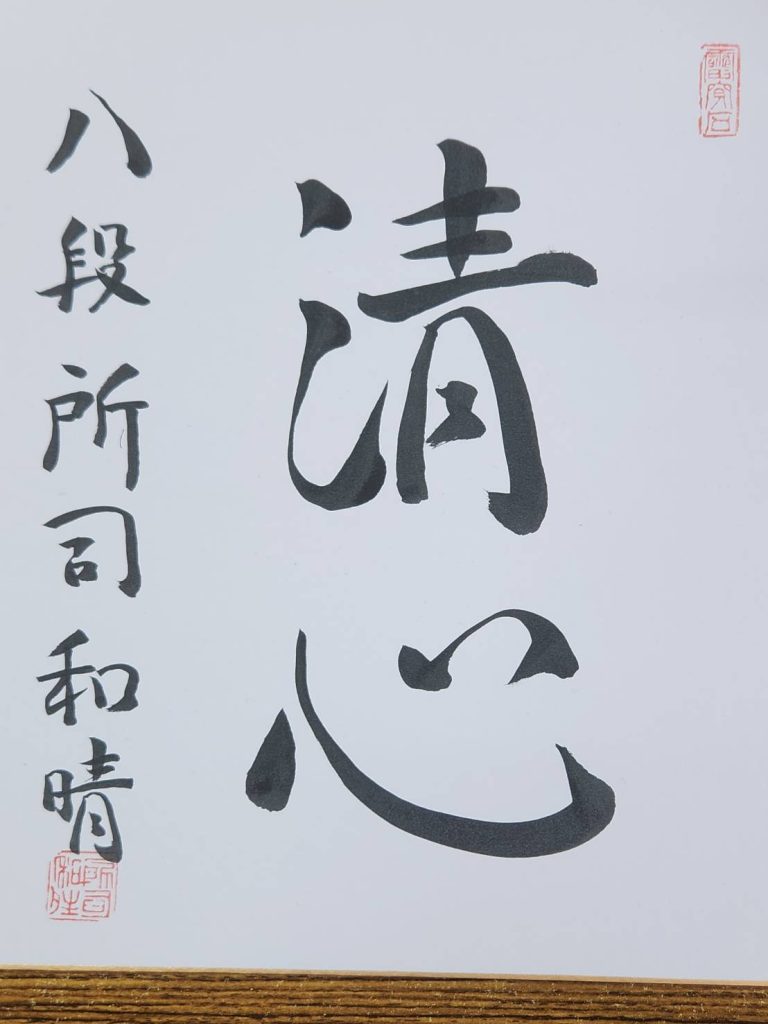 清心
八段 所司和晴